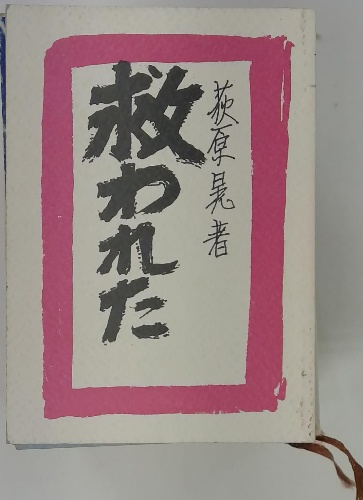 荻原晃著
救われた